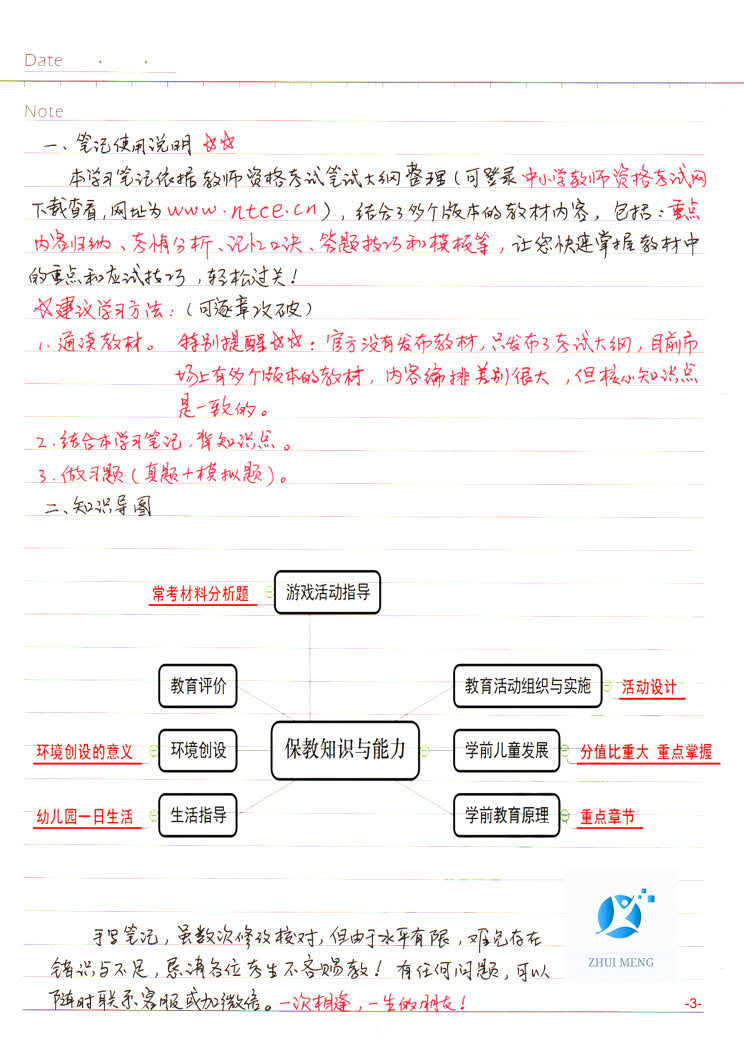 Date
Note
一、笔记使用说明 ☆☆
本学习笔记依据教师资格考试笔试大纲整理(可登录中小学教师资格考试网
下载查看,网址为www.ntce.cn),结合了多个版本的教材内容,包括:重点
内容归纳、考情分析、记忆口诀、答题技巧和模板等,让您快速掌握教材中
的重点和应试技巧,轻松过关!
☆建议学习方法:(可逐章攻破)
1.通读教材。 特别提醒☆☆:官方没有发布教材,只发布了考试大纲,目前市
场上有多个版本的教材,内容编排差别很大,但核心知识点
是一致的。
2.结合本学习笔记,背知识点。
3.做习题(真题+模拟题)。
二、知识导图
常考材料分析题 游戏活动指导
教育评价 教育活动组织与实施 活动设计
环境创设的意义 环境创设 保教知识与能力 学前儿童发展 分值比重大 重点掌握
幼儿园一日生活 生活指导 学前教育原理 重点章节
手写笔记,虽数次修改核对,但由于水平有限,难免存在
错误与不足,恳请各位考生不吝赐教!有任何问题,可以
随时联系客服或加微信。一次相逢,一生的朋友!
ZHUI MENG
-3-